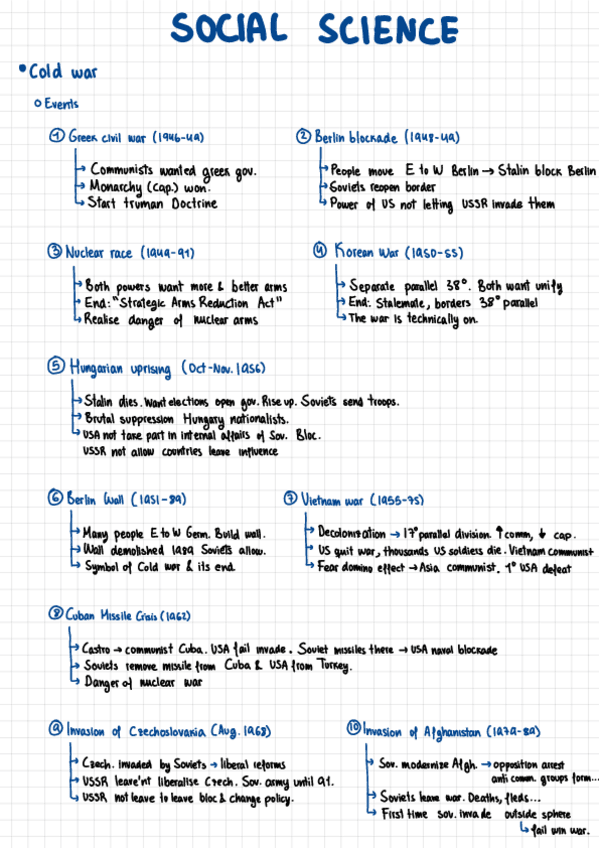 SOCIAL SCIENCE
• Cold war
○ Events
① Greek civil war (1946-49)
→ Communists wanted greek gov.
→ Monarchy (cap.) won.
→ Start truman Doctrine
② Berlin blockade (1948-49)
→ People move E to W Berlin → Stalin block Berlin
→ Soviets reopen border
→ Power of US not letting USSR invade them
③ Nuclear race (1949-91)
→ Both powers want more & better arms
→ End: "Strategic Arms Reduction Act"
→ Realise danger of nuclear arms
④ Korean War (1950-55)
→ Separate parallel 38°. Both want unify
→ End: Stalemate, borders 38° parallel
→ The war is technically on.
⑤ Hungarian uprising (Oct-Nov. 1956)
→ Stalin dies. Want elections open gov. Rise up. Soviets send troops.
→ Brutal suppression Hungary nationalists.
→ USA not take part in internal affairs of Sov. Bloc.
USSR not allow countries leave influence
⑥ Berlin Wall (1951-89)
→ Many people E to W Germ. Build wall.
→ Wall demolished 1989 Soviets allow.
→ Symbol of Cold war & its end.
⑦ Vietnam war (1955-75)
→ Decolonisation → 17° parallel division. ↑ comm, ↓ cap.
→ US quit war, thousands US soldiers die. Vietnam communist
→ Fear domino effect → Asia communist. 1° USA defeat
⑧ Cuban Missile Crisis (1962)
→ Castro → communist Cuba. USA fail invade. Soviet missiles there → USA naval blockade
→ Soviets remove missile from Cuba & USA from Turkey.
→ Danger of nuclear war
⑨ Invasion of Czechoslovakia (Aug. 1968)
→ Czech. invaded by Soviets → liberal reforms
→ USSR leave'nt liberalise Czech. Sov. army until 91.
→ USSR not leave to leave bloc & change policy.
⑩ Invasion of Afghanistan (1979-89)
→ Sov. modernize Afgh. → opposition arrest
anti comm. groups form...
→ Soviets leave war. Deaths, fleds...
→ First time sov. invade outside sphere
↳ fail win war.